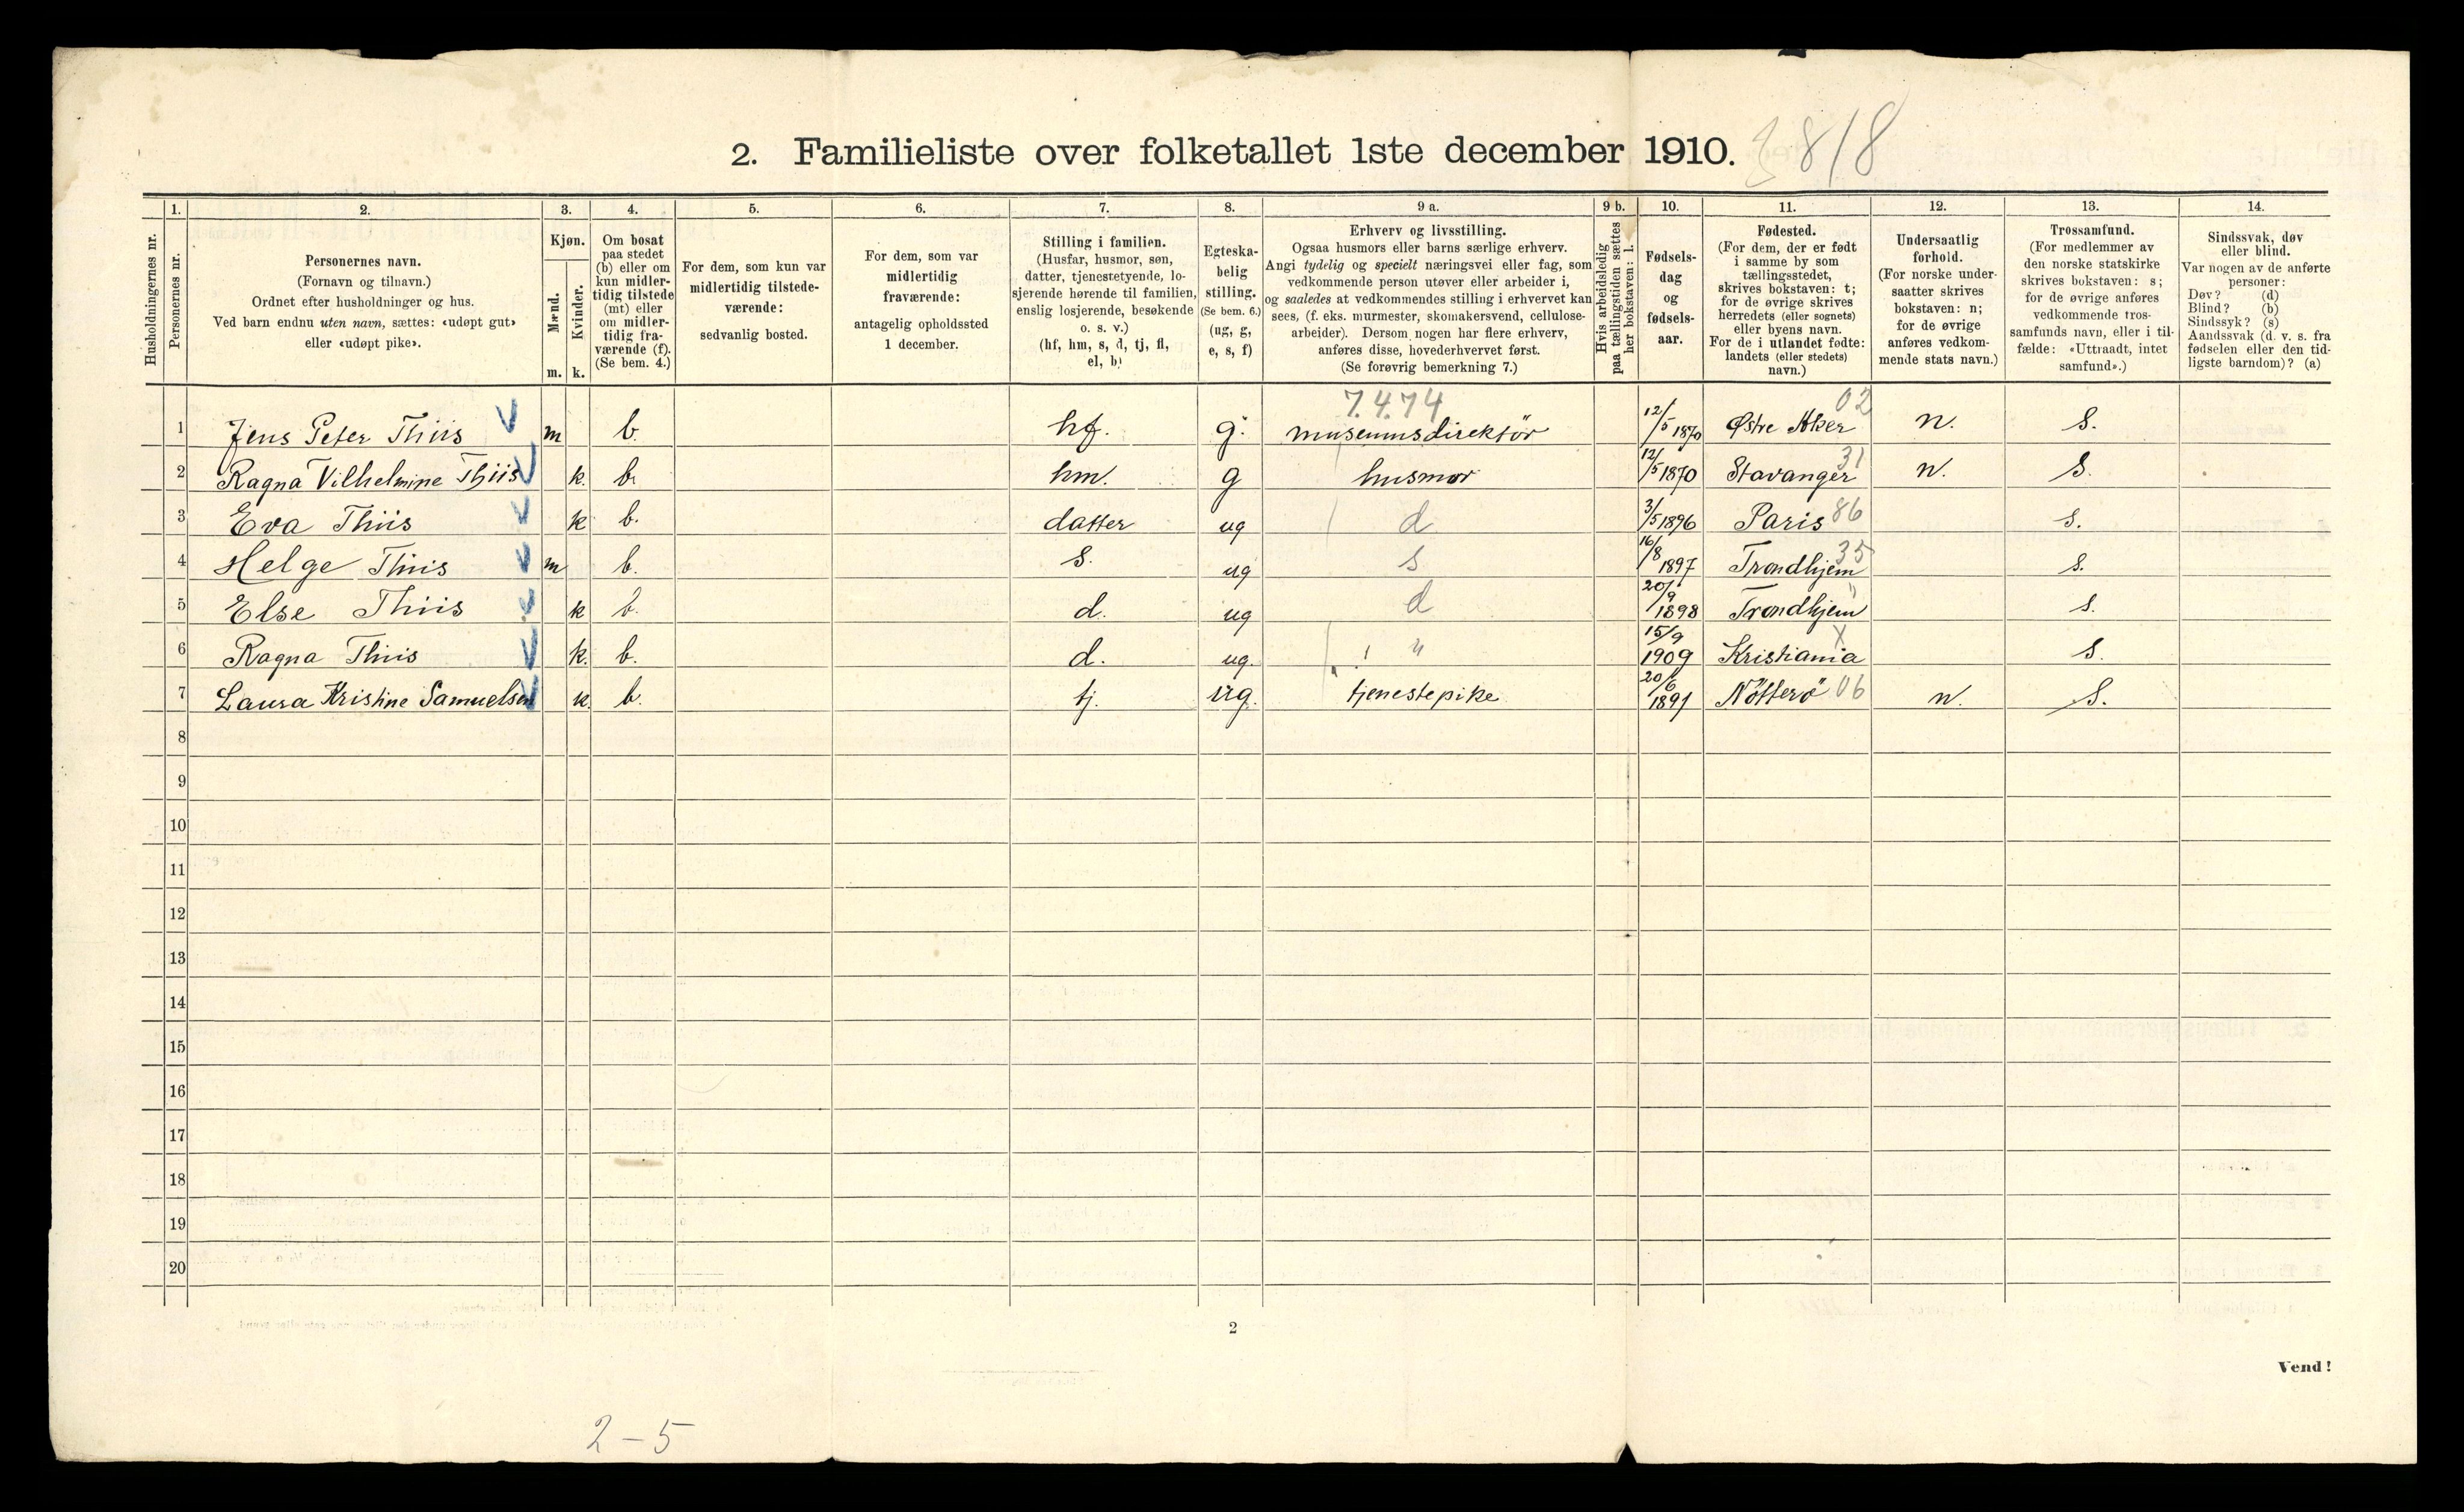 2. Familieliste over folketallet 1ste december 1910. 818
1. 2. 3. 4. 5. 6. 7. 8. 9 a. 9 b. 10. 11. 12. 13. 14.
Husholdningernes nr.
Personernes nr.
Personernes navn.
(Fornavn og tilnavn.)
Ordnet efter husholdninger og hus.
Ved barn endnu uten navn, sættes: «udøpt gut»
eller «udøpt pike».
Kjøn.
Mænd.
Kvinder.
m. k.
Om bosat
paa stedet
(b) eller om
kun midler-
tidig tilstede
(mt) eller
om midler-
tidig fra-
værende (f).
(Se bem. 4.)
For dem, som kun var
midlertidig tilstede-
værende:
sedvanlig bosted.
For dem, som var
midlertidig
fraværende:
antagelig opholdssted
1 december.
Stilling i familien.
(Husfar, husmor, søn,
datter, tjenestetyende, lo-
sjerende hørende til familien,
enslig losjerende, besøkende
o. s. v.)
(hf, hm, s, d, tj, fl,
el, b)
Egteska-
belig
stilling.
(Se bem. 6.)
(ug, g,
e, s, f)
Erhverv og livsstilling.
Ogsaa husmors eller barns særlige erhverv.
Angi tydelig og specielt næringsvei eller fag, som
vedkommende person utøver eller arbeider i,
og saaledes at vedkommendes stilling i erhvervet kan
sees, (f. eks. murmester, skomakersvend, cellulose-
arbeider). Dersom nogen har flere erhverv,
anføres disse, hovederhvervet først.
(Se forøvrig bemerkning 7.)
Hvis arbeidsledig
paa tællingstiden sættes
her bokstaven: l.
Fødsels-
dag
og
fødsels-
aar.
Fødested.
(For dem, der er født
i samme by som
tællingsstedet,
skrives bokstaven: t;
for de øvrige skrives
herredets (eller sognets)
eller byens navn.
For de i utlandet fødte:
landets (eller stedets)
navn.)
Undersaatlig
forhold.
(For norske under-
saatter skrives
bokstaven: n;
for de øvrige
anføres vedkom-
mende stats navn.)
Trossamfund.
(For medlemmer av
den norske statskirke
skrives bokstaven: s;
for de øvrige anføres
vedkommende tros-
samfunds navn, eller i til-
fælde: «Uttraadt, intet
samfund».)
Sindssvak, døv
eller blind.
Var nogen av de anførte
personer:
Døv? (d)
Blind? (b)
Sindssyk? (s)
Aandssvak (d. v. s. fra
fødselen eller den tid-
ligste barndom)? (a)
7.4.74 02
1 Jens Peter Thiis m b. hf. g. museumsdirektör 12/5 1870 Østre Aker n. s.
2 Ragna Vilhelmine Thiis k. b. hm. g husmor 12/5 1870 Stavanger 31 n. s.
3 Eva Thiis k b. datter ug d 3/5 1896 Paris 86 s.
4 Helge Thiis m b. s. ug s 16/8 1897 Trondhjem 35 s.
5 Else Thiis k b. d. ug d 20/9 1898 Trondhjem " s.
6 Ragna Thiis k. b. d. ug. " 15/9 1909 Kristiania x s.
7 Laura Kristine Samuelsen k. b. tj. ug. tjenestepike 20/6 1891 Nötterö 06 n. s.
8
9
10
11
12
13
14
15
16
17
18
19
20
2
Vend!
2-5